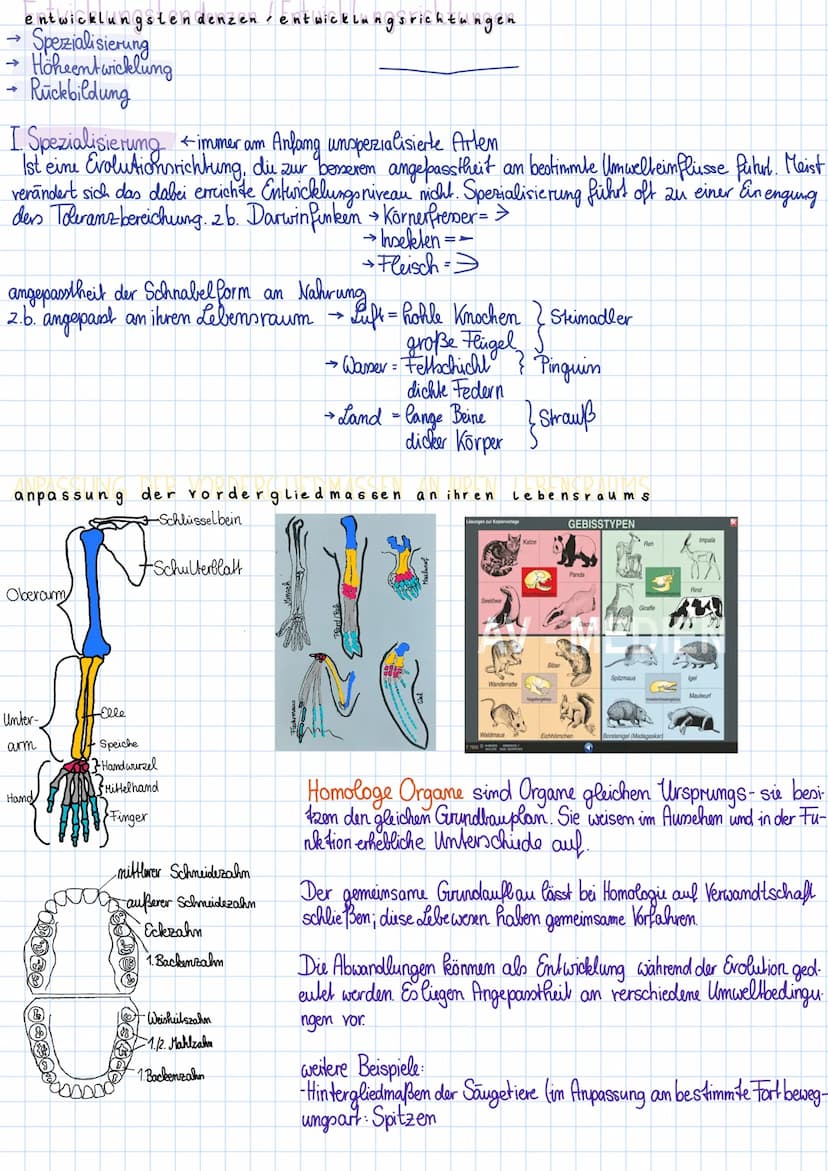 entwicklungstendenzen / entwicklungsrichtungen
→ Spezialisierung
→ Höhenentwicklung
→ Rückbildung
I. Spezialisierung ← immer am Anfang unspezialisierte Arten
Ist eine Evolutionsrichtung, die zur besseren angepasstheit an bestimmte Umwelteinflüsse führt. Meist
verändert sich das dabei erreichte Entwicklungsniveau nicht. Spezialisierung führt oft zu einer Einengung
des Toleranzbereichung. z.b. Darwinfinken → Körnerfresser =
→ Insekten =
→ Fleisch =
angepasstheit der Schnabelform an Nahrung
z.b. angepasst an ihren Lebensraum → Luft = hohle Knochen } Steinadler
große Flügel
→ Wasser = Fettschicht } Pinguin
dichte Federn
→ Land = lange Beine } Strauß
dicker Körper
ANPASSUNG DER VORDERGLIEDMASSEN AN IHREN LEBENSRAUMS
anpassung der vordergliedmassen an ihren lebensraums
Schlüsselbein
Schulterblatt
Oberarm
Elle
Unter-
arm
Speiche
Handwurzel
Mittelhand
Hand
Finger
Mensch
Maulwurf
Fledermaus
Wal
Lösungen zur Kopiervorlage
GEBISSTYPEN
Katze
Panda
Seelöwe
Ren
Impala
Giraffe
Rind
AV - MEDIEN
Wanderratte
Biber
Waldmaus
Eichhörnchen
Spitzmaus
Igel
Maulwurf
Borstenigel (Madagaskar)
Homologe Organe sind Organe gleichen Ursprungs - sie besi-
tzen den gleichen Grundbauplan. Sie weisen im Aussehen und in der Fu-
nktion erhebliche Unterschiede auf.
Der gemeinsame Grundaufbau lässt bei Homologie auf Verwandtschaft
schließen; diese Lebewesen haben gemeinsame Vorfahren.
Die Abwandlungen können als Entwicklung während der Evolution ged-
eutet werden. Es liegen Angepasstheit an verschiedene Umweltbedingu-
ngen vor.
weitere Beispiele:
- Hintergliedmaßen der Säugetiere (in Anpassung an bestimmte Fortbeweg-
ungsart: Spitzen
mittlerer Schneidezahn
äußerer Schneidezahn
Eckzahn
1. Backenzahn
Weisheitszahn
1./2. Mahlzahn
1. Backenzahn